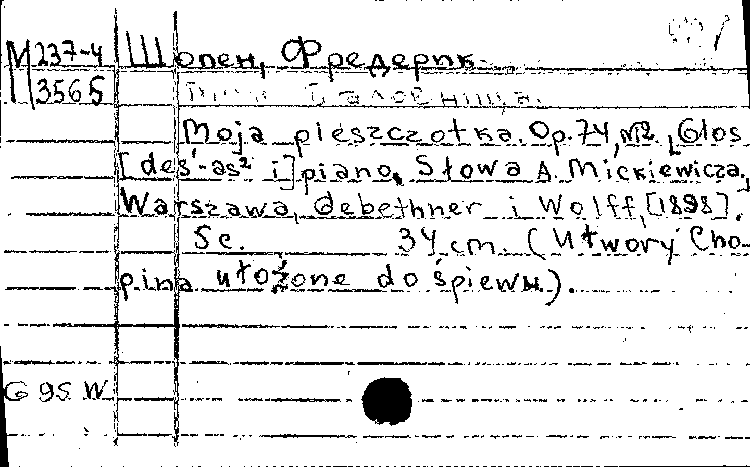 M 237-4 Шопен, Фредерик.
3565 Моя баловница.
Moja pieszczotka. Op. 74, №2, [Głos
[des¹-as² i] piano. Słowa A. Mickiewicza,
Warszawa, Gebethner i Wolff, [1898].
5c. 34 cm. (Utwory Cho-
pina ułożone do śpiewu).
G 95 W